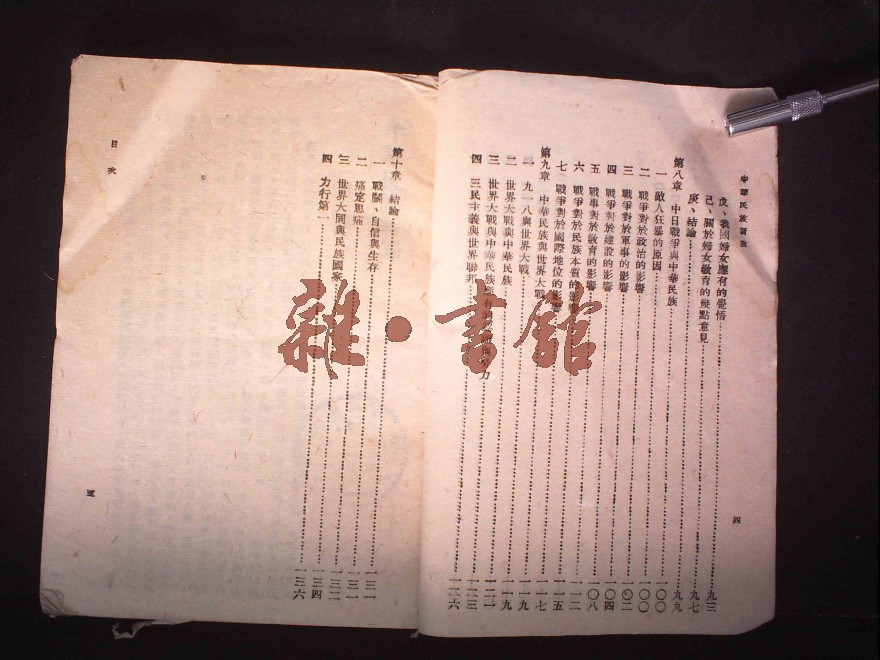 中華民族
戊、我國婦女應有的覺悟
己、關於婦女教育的幾點意見……九三
庚、結論……九七
第八章 中日戰爭與中華民族……九九
一 敵人狂暴的原因……一〇〇
二 戰爭對於政治的影響……一〇〇
三 戰爭對於軍事的影響……一〇二
四 戰爭對於建設的影響……一〇四
五 戰事對於教育的影響……一〇八
六 戰爭對於民族本質的影響……一一二
七 戰爭對於國際地位的影響……一一五
第九章 中華民族與世界大戰……一一七
一 九一八與世界大戰……一一九
二 世界大戰與中華民族……一一九
三 世界大戰與中華民族應有的……力……一二一
四 三民主義與世界聯邦……一二三
一二六
四
目次
第十章 結論……一三一
一 戰鬪、自信與生存……一三一
二 痛定思痛……一三二
三 世界大同與民族國家……一三四
四 力行第一……一三六
五
雜·書館